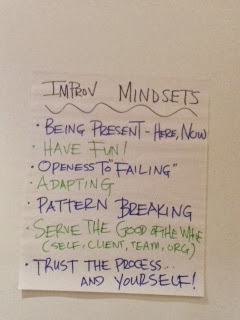 IMPROV MINDSETS
• BEING PRESENT - HERE, NOW
• HAVE FUN!
• OPENESS TO "FAILING"
• ADAPTING
• PATTERN BREAKING
• SERVE THE GOOD OF THE WHOLE
(SELF, CLIENT, TEAM, ORG)
• TRUST THE PROCESS...
AND YOURSELF!